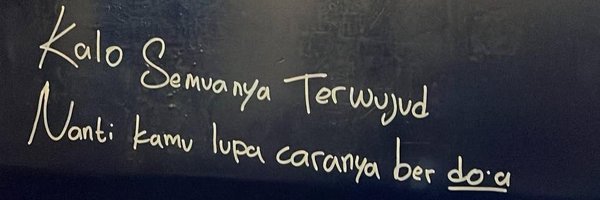 Kalo Semuanya Terwujud
Nanti kamu lupa caranya ber do'a